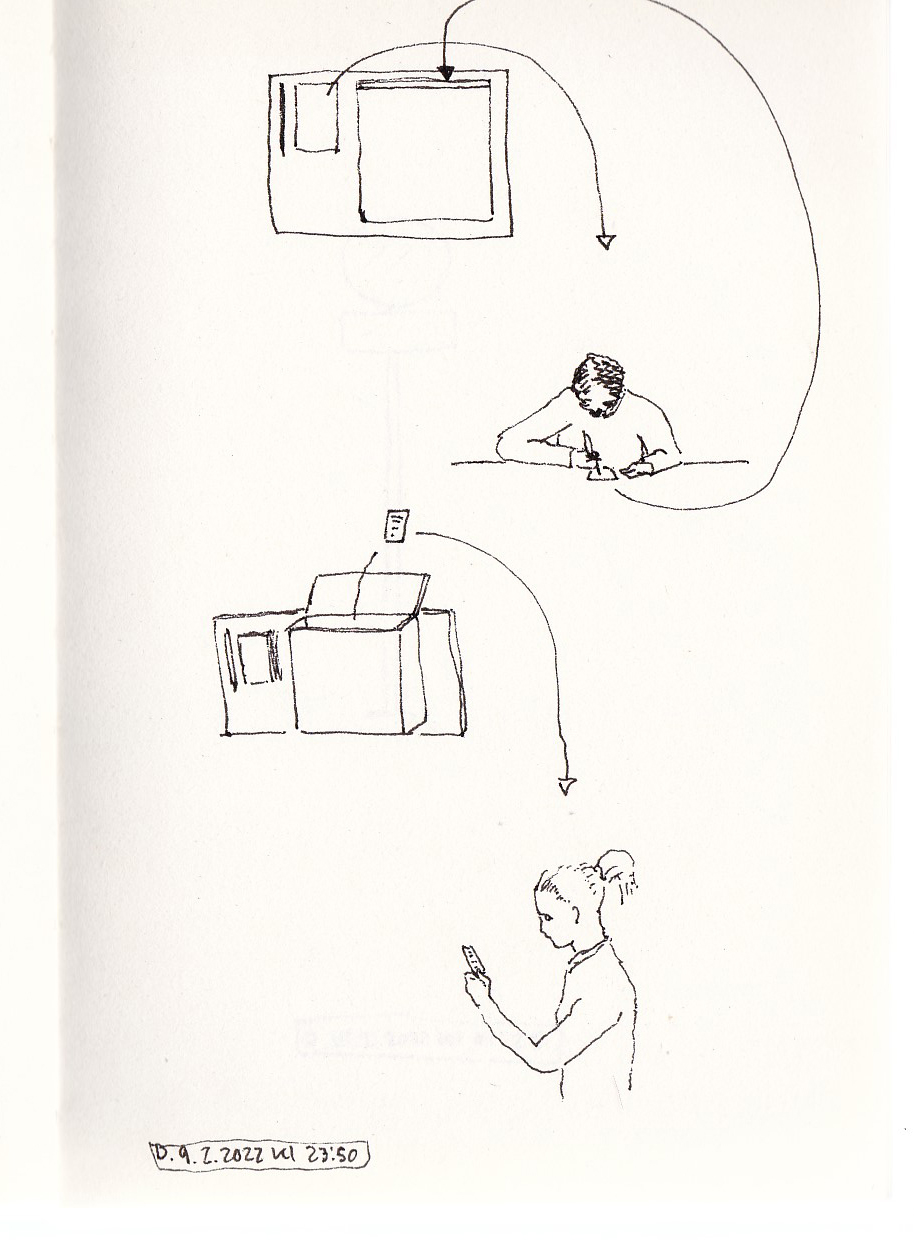 D. 9.2.2022 kl 23:50